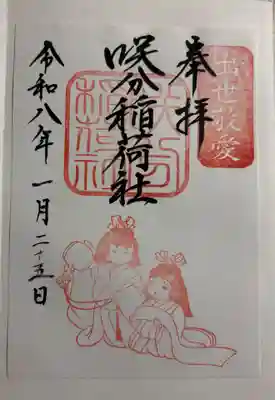 出世敬愛
奉拝
咲分稲荷社
令和八年一月二十五日